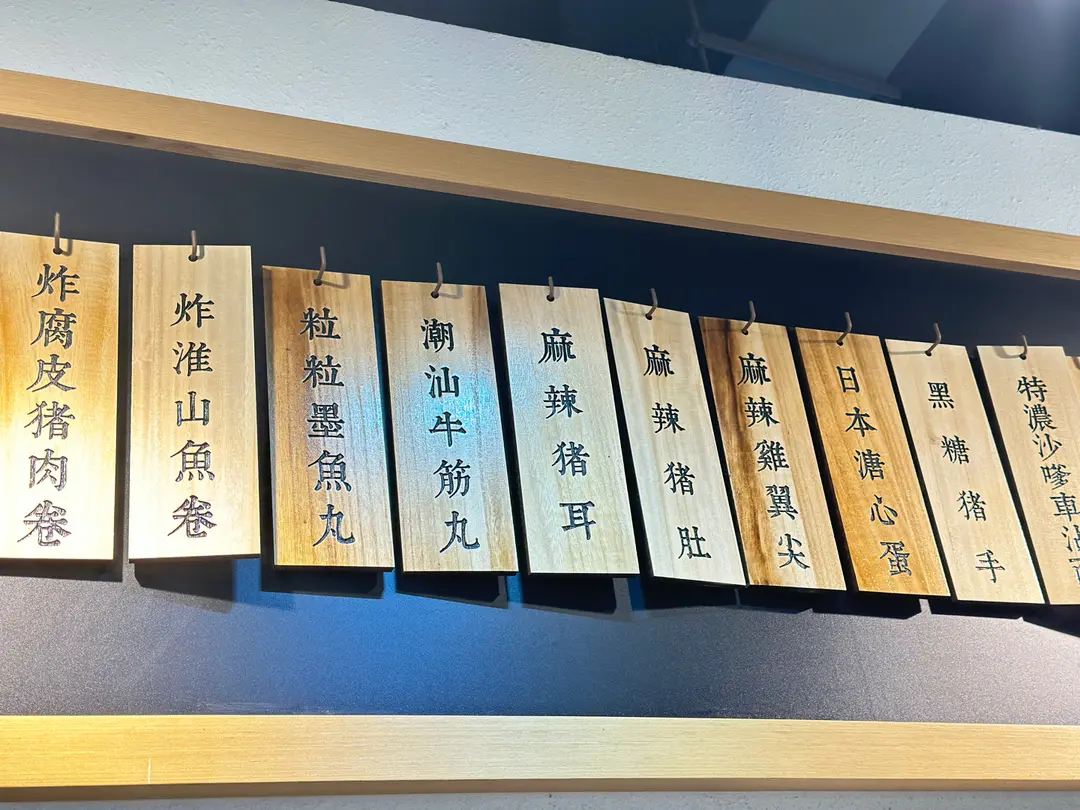 炸腐皮猪肉卷
炸淮山魚卷
粒粒墨魚丸
潮汕牛筋丸
麻辣猪耳
麻辣猪肚
麻辣雞翼尖
日本溏心蛋
黑糖猪手
特濃沙嗲車沾